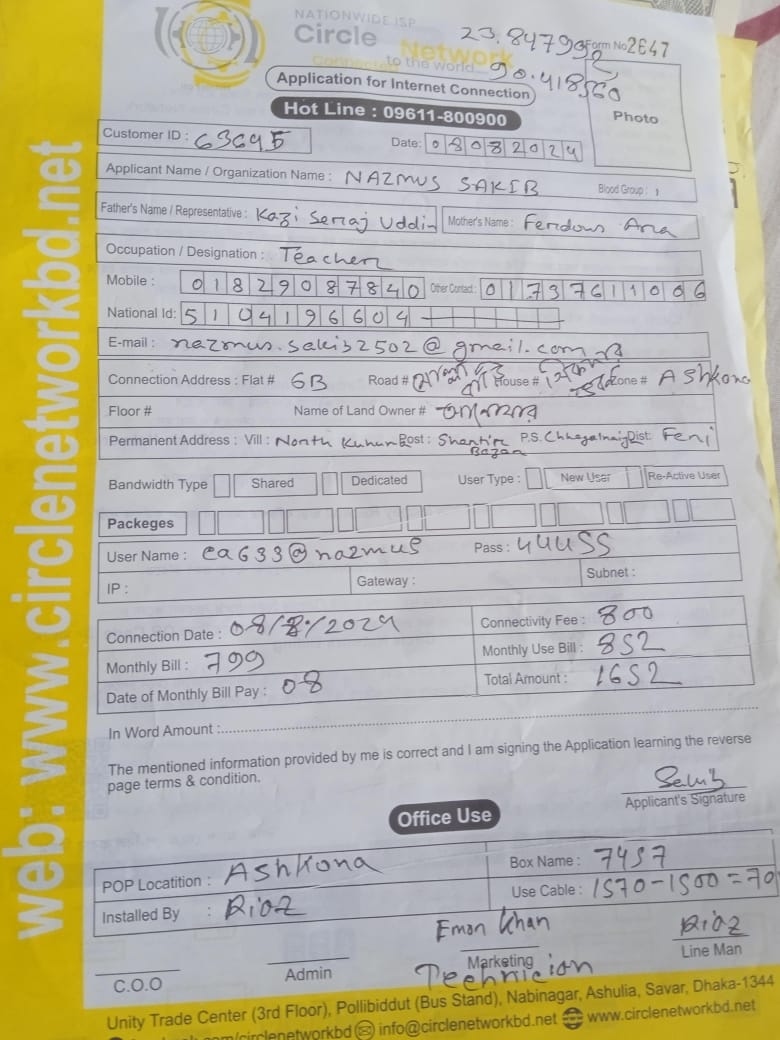 NATIONWIDE ISP
Circle
Network
Connecting to the world...
23.84799
Form No 2647
90.418560
Application for Internet Connection
Hot Line : 09611-800900
Photo
Customer ID : 63695
Date: 08082024
Applicant Name / Organization Name : NAZMUS SAKIB Blood Group :
Father's Name / Representative : Kazi Serraj Uddin Mother's Name : Ferdous Ara
Occupation / Designation : Teacher
Mobile : 01829087840 Other Contact : 01737611006
National Id: 5104196604
E-mail : nazmus.sakib2502@gmail.com
Connection Address : Flat # 6B Road # House # Zone # Ashkona
Floor # Name of Land Owner #
Permanent Address : Vill : North Post : Shantir Bazar P.S. Chhagalnaiya Dist: Feni
Bandwidth Type Shared Dedicated User Type : New User Re-Active User
Packeges
User Name : ca633@nazmus Pass : 44455
IP : Gateway : Subnet :
Connection Date : 08/8/2024 Connectivity Fee : 800
Monthly Bill : 799 Monthly Use Bill : 852
Date of Monthly Bill Pay : 08 Total Amount : 1652
In Word Amount :
The mentioned information provided by me is correct and I am signing the Application learning the reverse
page terms & condition.
Sakib
Applicant's Signature
Office Use
POP Locatition : Ashkona Box Name : 7457
Installed By : Riaz Use Cable : 1570-1500=70
Emon Khan Riaz
C.O.O Admin Marketing Line Man
Technician
Unity Trade Center (3rd Floor), Pollibiddut (Bus Stand), Nabinagar, Ashulia, Savar, Dhaka-1344
.com/circlenetworkbd info@circlenetworkbd.net www.circlenetworkbd.net
web: www.circlenetworkbd.net